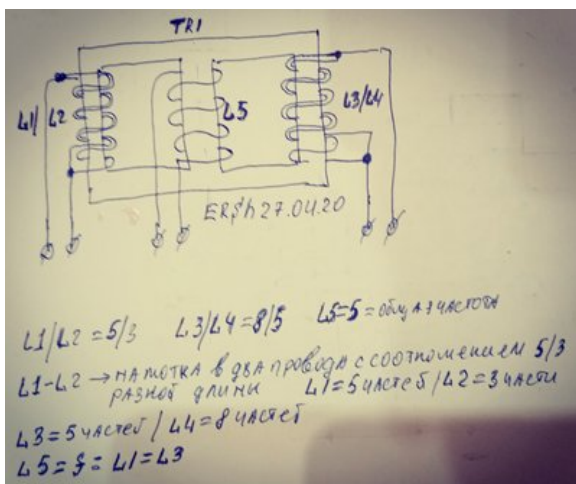 TR1
L1/
L2
L5
L3/L4
ERS'h 27.04.20
L1/L2 = 5/3 L3/L4 = 8/5 L5=5= общая частота
L1-L2 → намотка в два провода с соотношением 5/3
разной длины L1=5 частей / L2=3 части
L3=5 частей / L4=8 частей
L5 = f = L1 = L3